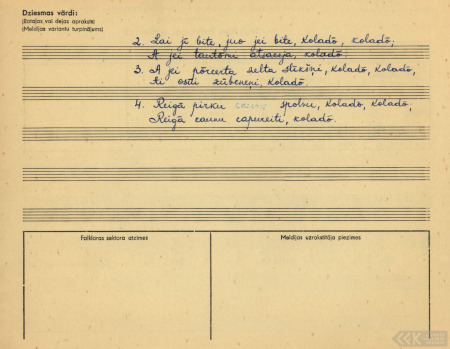 Dziesmas vārdi:
(Rotaļas vai dejas apraksts)
(Meldijas variantu turpinājums)
2. Lai jē bite, juo jei bite, koladō, koladō;
A jei tautōni atsacēja, koladō.
3. A jei pōrcerta zelta stikōņi, koladō, koladō,
ti osti zūbeneņi, koladō.
4. Reigā pirku spolvu, koladō, koladō,
Reigā caunu capureiti, koladō.
Folkloras sektora atzīmes
Meldijas uzrakstītāja piezīmes